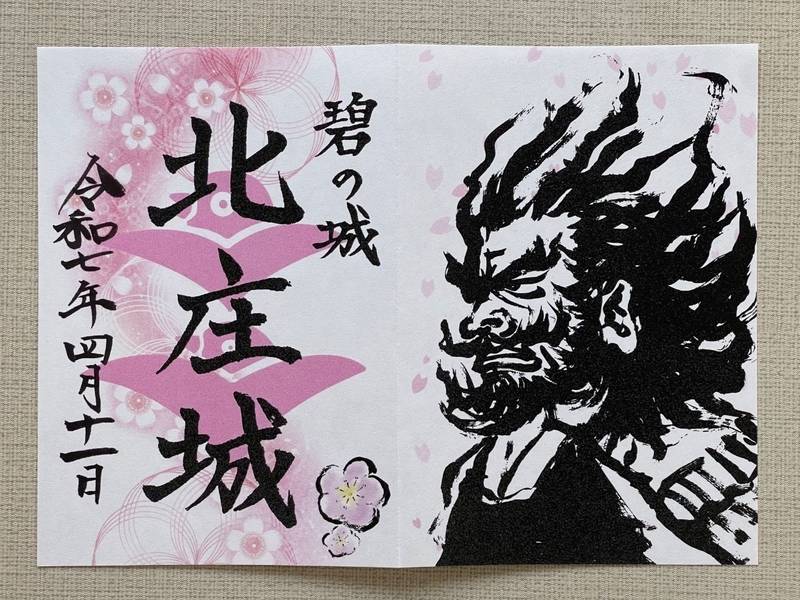 碧の城
北庄城
令和七年四月十一日